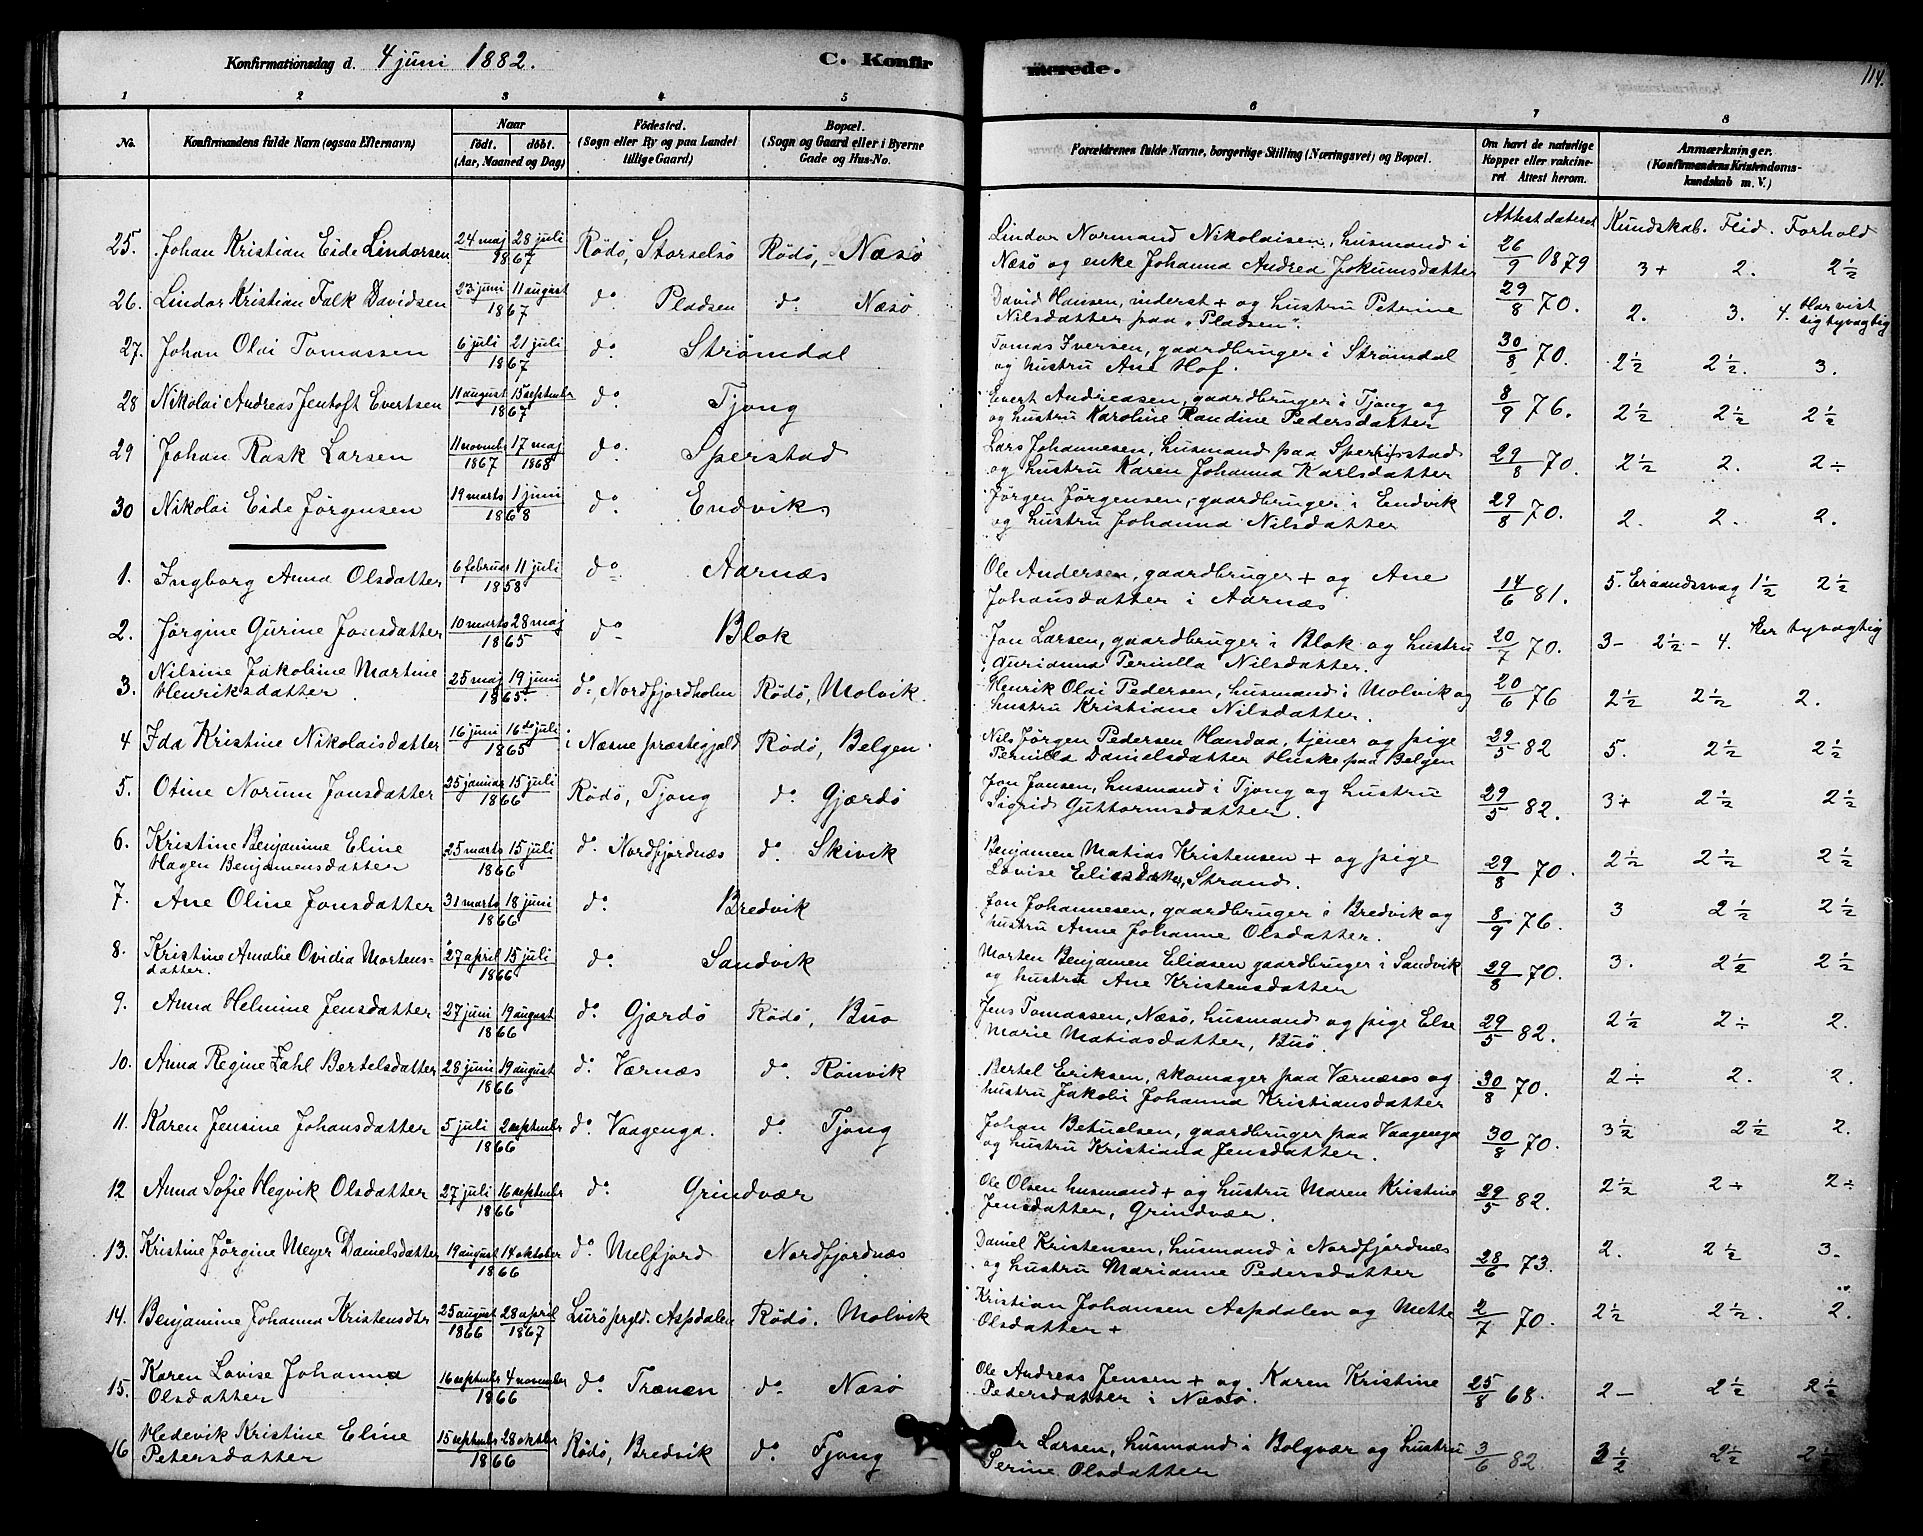 Konfirmationsdag d. 4 juni 1882. C. Konfirmerede. 114.
1 2 3 4 5 6 7 8
No. Konfirmandens fulde Navn (ogsaa Efternavn) Naar født. døbt. (Aar, Maaned og Dag) Fødested. (Sogn eller By og paa Landet tillige Gaard) Bopæl. (Sogn og Gaard eller i Byerne Gade og Hus-No. Forældrenes fulde Navne, borgerlige Stilling (Næringsvei) og Bopæl. Om havt de naturlige Kopper eller vaccineret Attest herom. Anmærkninger. (Konfirmandens Kristendomskundskab m. V.)
Attest dateret Kundskab. Flid. Forhold
25. Johan Kristian Eide Lindorsen 24 maj 28 juli 1867 Rödö, Storselsö Rödö, Næsö Lindor Normand Nikolaisen, husmand i Næsö og enke Johanna Andrea Jokumsdatter 26/9 1879 3+ 2. 2½
26. Lindor Kristian Falk Davidsen 23 juni 11 august 1867 do. Pladsen do. Næsö David Hansen, inderst + og hustru Petrine Nilsdatter paa "Pladsen". 29/8 70. 2. 3. 4. Har vist sig tyvagtig
27. Johan Olai Tomassen 6 juli 21 juli 1867 do. Strömdal Tomas Iversen, gaardbruger i Strömdal og hustru Ane Hof. 30/8 70. 2½ 2½. 3.
28 Nikolai Andreas Jentoft Evertsen 11 august 15 september 1867 do. Tjong Evert Andreasen, gaardbruger i Tjong og og hustru Karoline Randine Pedersdatter 8/9 76. 2½ 2½ 2½
29 Johan Rask Larsen 11 novembr 1867 17 maj 1868 do. Sperstad Lars Johannesen, husmand paa Sperstad og hustru Karen Johanna Karlsdatter 29/8 70. 2½ 2. 2÷
30 Nikolai Eide Jörgensen 19 marts 1 juni 1868 do. Endvik Jörgen Jörgensen, gaardbruger i Endvik og hustru Johanna Nilsdatter 29/8 70. 2. 2. 2.
1. Ingborg Anna Olsdatter 6 februar 11 juli 1858 do. Aarnæs Ole Andersen, gaardbruger + og Ane Johansdatter i Aarnæs 14/6 81. 5. Er aandssvag 1½ 2½
2. Jörgine Gurine Jonsdatter 10 marts 28 maj 1865 do. Blok Jon Larsen, gaardbruger i Blok og hustru Gurianna Pernilla Nilsdatter. 20/7 70. 3- 2½ - 4. Har tyvagtig
3. Nilsine Jakobine Martine Henriksdatter 25 maj 19 juni 1865 do. Nordfjordholm Rödö, Molvik. Henrik Olai Pedersen, husmand i Molvik og hustru Kristiane Nilsdatter. 20/6 76 2½ 2½ 2.
4 Ida Kristine Nikolaisdatter 16 juni 16de juli 1865 i Næsne præstegjæld Rödö, Belgen. Nils Jörgen Pedersen Handaa, tjener og pige Pernilla Danielsdatter Huske paa Belgen 29/5 82 5. 2½ 2½
5. Otine Norum Jonsdatter 25 januar 15 juli 1866 Rödö, Tjong do. Gjærdö Jon Jonsen, husmand i Tjong og hustru Sigrid Guttormsdatter. 29/5 82. 3+ 2½ 2½
6. Kristine Benjamine Eline Hagen Benjamensdatter 25 marts 15 juli 1866 do. Nordfjordnæs do. Skivik Benjamen Matias Kristensen + og pige Lovise Eliasdatter, Strand. 29/8 70. 2½ 2½ 2½
7. Ane Oline Jonsdatter 31 marts 18 juni 1866 do. Bredvik Jon Johannesen, gaardbruger i Bredvik og hustru Anne Johanne Olsdatter. 8/9 76. 3 2½ 2½
8. Kristine Amalie Ovidia Mortensdatter. 27 april 15 juli 1866 do. Sandvik Morten Benjamen Eliasen gaardbruger i Sandvik og hustru Ane Kristensdatter 29/8 70. 3. 2½ 2½
9. Anna Helmine Jensdatter 27 juni 19 august 1866 do. Gjærdö Rödö, Buo Jens Tomassen, Næsö, husmand og pige Else Marie Matiasdatter, Buö. 29/5 82. 2½ 2÷ 2.
10. Anna Regine Zahl Bertelsdatter 28 juni 19 august 1866 do. Værnæs do. Rönvik Bertel Eriksen, skomager paa Værnæsos og hustru Jakobi Johanna Kristiansdatter 30/8 70. 2÷ 2. 2.
11. Karen Jensine Johansdatter 5 juli 2 september 1866 do. Vaagenga. do. Tjong Johan Betuelsen, gaardbruger paa Vaagenga og hustru Kristiana Jensdatter. 30/8 70. 3½ 2½ 2.
12 Anna Sofie Hegvik Olsdatter 27 juli 16 september 1866 do. Grindvær Ole Olsen husmand + og hustru Maren Kristine Jensdatter, Grindvær. 29/5 82. 2½ 2÷ 2÷
13. Kristine Jörgine Meyer Danielsdatter 19 august 14 oktober 1866 do. Melfjord Nordfjordnæs Daniel Kristensen, husmand i Nordfjordnæs og hustru Marianne Pedersdatter 28/6 73. 2. 2½ 3.
14. Benjamine Johanna Kristensdtr 25 august 1866 28 april 1867 Lurö prgld. Aspdalen Rödö. Molvik Kristian Johansen Aspdalen og Mette Olsdatter + 2/7 70. 2½ 2½. 2.
15. Karen Lovise Johanna Olsdatter 16 septembr 4 november 1866 do. Trænen do. Næsö Ole Andreas Jensen + og Karen Kristine Pedersdatter i Næsö. 25/8 68. 2- 2½ 2½
16 Hedevik Kristine Eline Petersdatter 15 septembr 28 oktbr 1866 Rödö, Bredvik do. Tjong Larsen, husmand i Bolgvær og hustru Serine Olsdatter 3/6 82. 3½ 2½ 2½